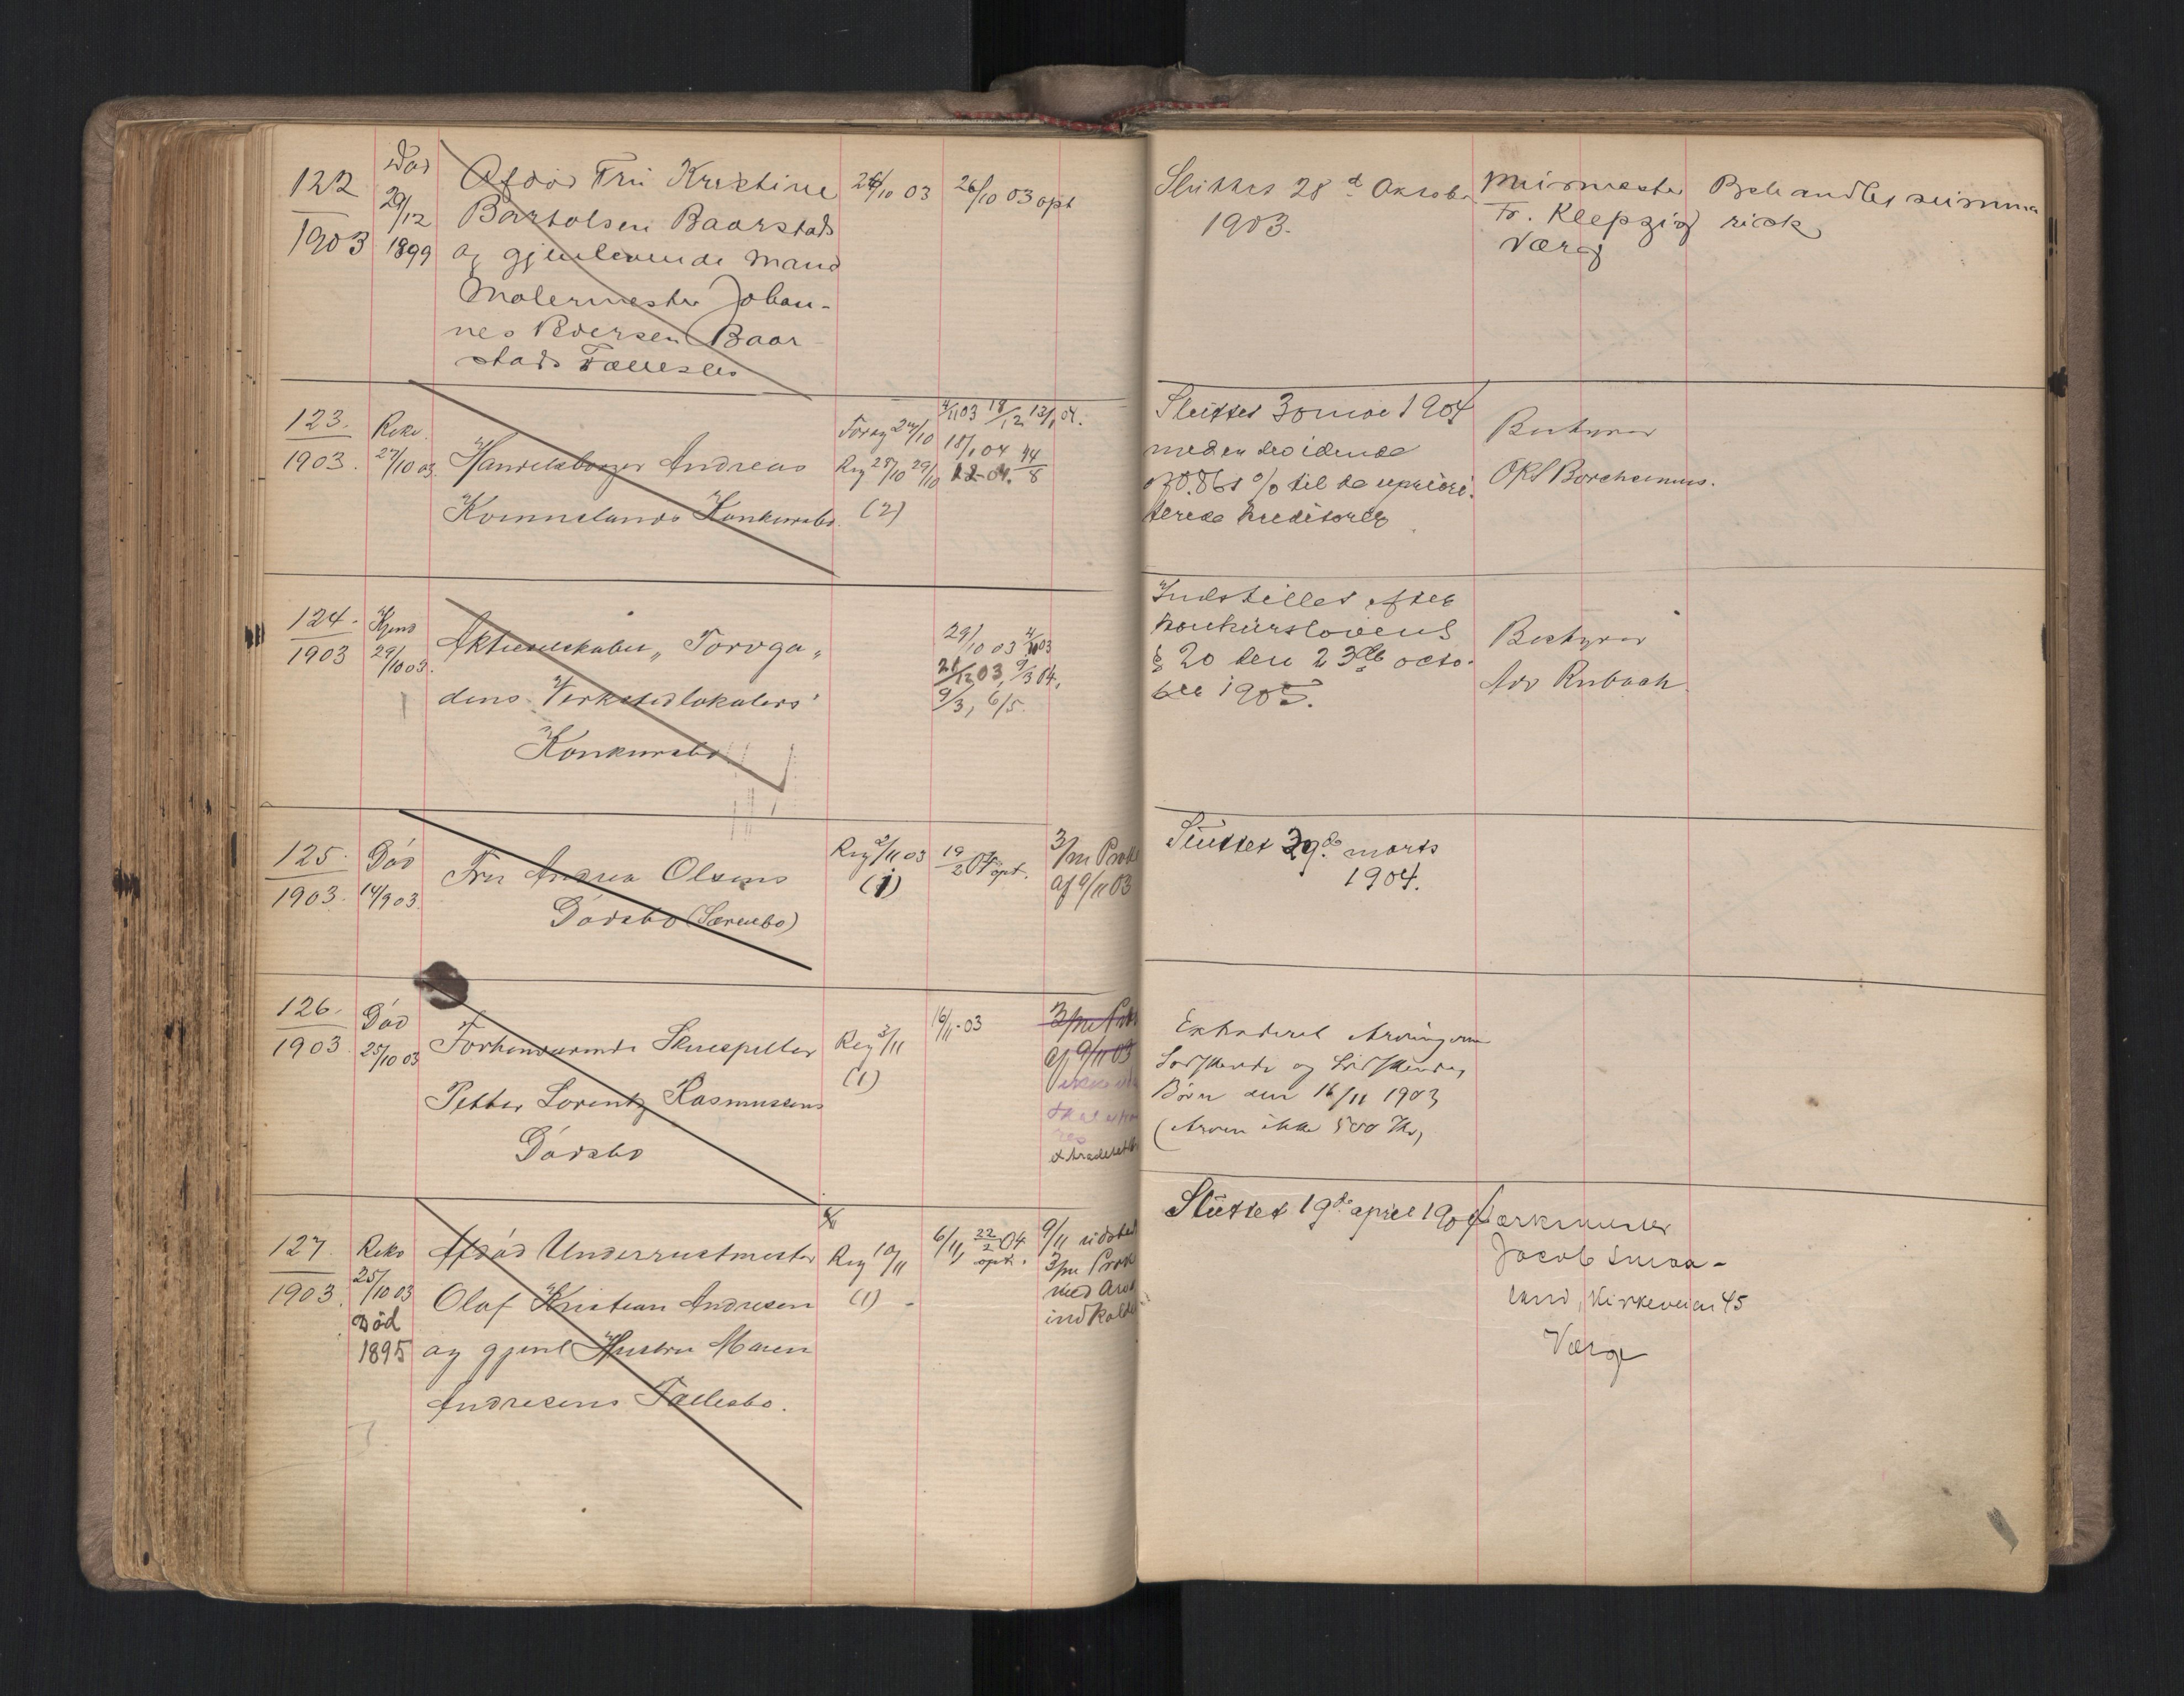 122
1903
Død
29/12
1899
Afdød Fru Kristine
Bartolsen Baarstads
og gjenlevende Mand
Malermester Johan-
nes Pedersen Baar-
stads Fællesbo
24/10 03
26/10 03 opt
Sluttet 28d Oktober
1903.
Murmester
Fr. Klepzig
Værge
Behandles summa
risk
123.
1903.
Rekv.
27/10 03.
Handelsborger Andreas
Konkursbo.
Foreg 24/10
Reg 28/10 29/10
(2)
4/11 03 18/12 12/1 04.
18/1 04
Sluttet 30 mai 1904
med en dividende
af 0.861 % til de upriori-
terede kreditorer
Bestyrer
ORS Borchsenius.
124.
1903
Kjend
29/10 03.
Aktieselskabet „Torvga„
dens Verkstedlokalers'
Konkursbo
29/10 03 4/11 03
21/12 03, 9/3 04,
9/3, 6/5.
Indstillet efter
konkurslovens
§ 20 den 23de octo-
ber 1905.
Bestyrer
Adv Rubach
125.
1903.
Død
14/9 03.
Fru Andrea Olsens
Dødsbo (Særeubo)
Reg 2/11 03
(1)
19/2 04 opt.
3/m Prok
af 9/11 03
Sluttet 29de marts
1904.
126.
1903.
Død
25/10 03
Forhenværende Skuespiller
Petter Lorentz Rasmussens
Dødsbo
Reg 3/11
(1)
16/11-03
3/m Prok
af 9/11 03
ikke
extraderet
Extraderet Arvingerne
Sødskende og Sødskendes
Børn den 16/11 1903
(Arven ikke 500 Kr,
127.
1903.
Rekv
25/10 03
Død
1895
Afdød Underrustmester
Olaf Kristian Andresen
og gjenl Hustru Maren
Andresens Fællesbo.
Reg 10/11
(1) -
6/11, 22/2 04
opt.
9/11 udsted
3/m Prok
med Arv
indkald
Sluttet 19de april 1904
Værkmester
Jacob Smaa-
land, Kirkeveien 45
Værge